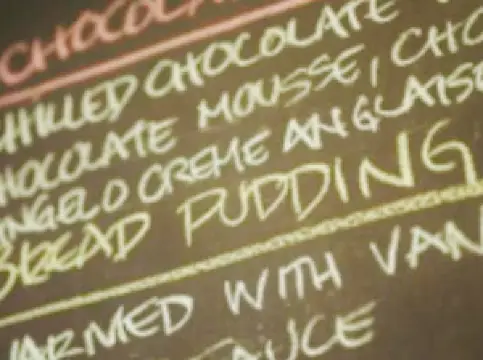 CHOCOLA
CHILLED CHOCOLATE
CHOCOLATE MOUSSE, CHO
ANGELO CREME ANGLAISE
BREAD PUDDING
WARMED WITH VAN
SAUCE